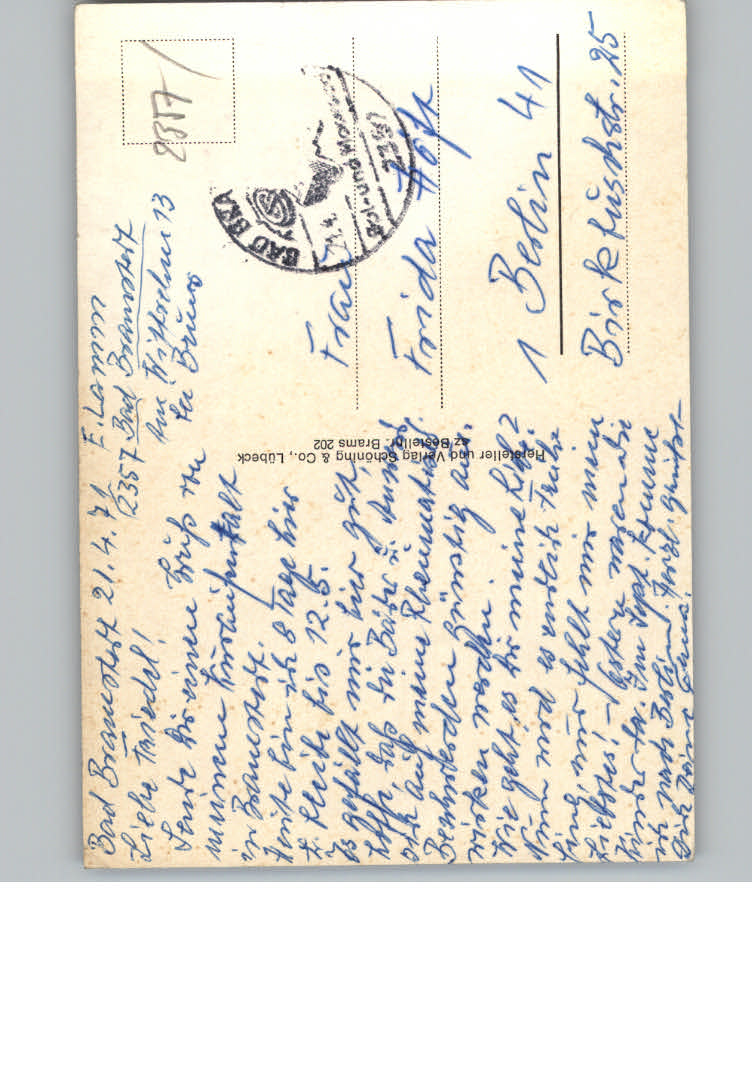 Bad Bramstedt 21.4.71
Liebe Friedel!
Sende Dir einen Gruß von
meinem Kuraufenthalt
in Bramstedt.
Heute bin ich 8 Tage hier
u. bleibe bis 12.5.
Es gefällt mir hier gut
hoffe daß die Bäder u.
sich auf meine Rheumatisch.
Beschwerden günstig aus-
wirken werden.
Wie geht es Dir meine Liebe?
Nun wird es endlich Früh-
ling, nur fehlt mir mein
Liebstes! – Gestern waren die
Kinder da. Im Sept. komme
ich nach Berlin. Herzl. grüßt
Dich Deine Erna.
E. Lamm
2357 Bad Bramstedt
Am 13
bei Bruns
Hersteller und Verlag Schöning & Co., Lübeck
sz Bestellnr. Brams 202
2357
BAD BRA
21.4.
2357
Frau
Frida Höft
1 Berlin 41
Birkbuschstr. 25